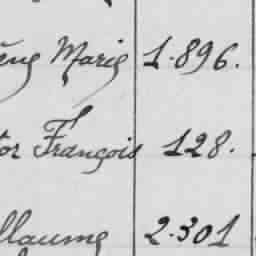 ène Marie 1.896.
tor François 128.
llaume 2.301